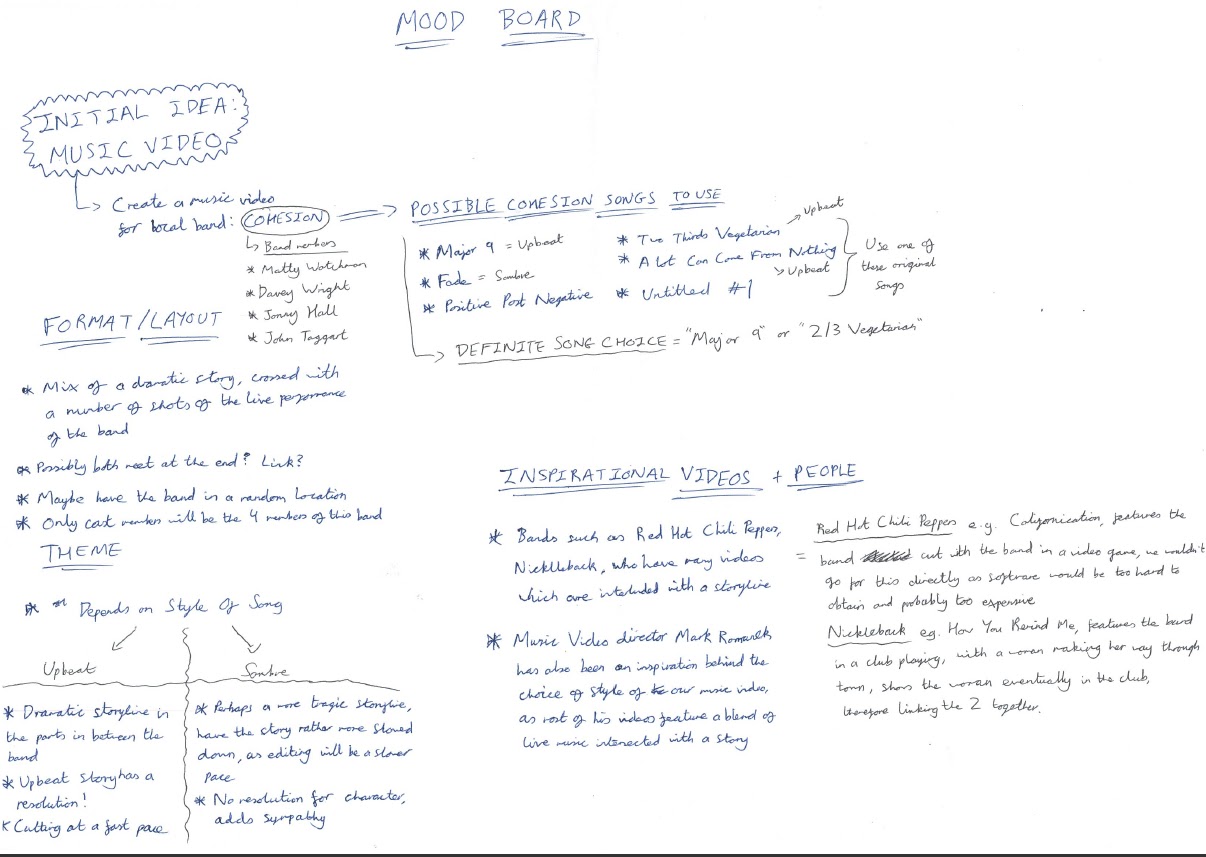 MOOD BOARD
INITIAL IDEA:
MUSIC VIDEO
Create a music video
for local band: COHESION
Band members
* Matty Watchman
* Davey Wright
* Jonny Hall
* John Taggart
POSSIBLE COHESION SONGS TO USE
* Major 9 = Upbeat
* Fade = Sombre
* Positive Post Negative
* Two Thirds Vegetarian
Upbeat
* A Lot Can Come From Nothing
Upbeat
* Untitled #1
Use one of
these original
songs
DEFINITE SONG CHOICE = "Major 9" or "2/3 Vegetarian"
FORMAT/LAYOUT
* Mix of a dramatic story, crossed with
a number of shots of the live performance
of the band
* Possibly both meet at the end? Link?
* Maybe have the band in a random location
* Only cast members will be the 4 members of this band
THEME
* Depends on Style Of Song
Upbeat
* Dramatic storyline in
the parts in between the
band
* Upbeat story has a
resolution!
* Cutting at a fast pace
Sombre
* Perhaps a more tragic storyline,
have the story rather more slowed
down, as editing will be a slower
pace
* No resolution for character,
adds sympathy
INSPIRATIONAL VIDEOS + PEOPLE
* Bands such as Red Hot Chili Peppers,
Nickleback, who have many videos
which are intercluded with a storyline
* Music Video director Mark Romanek
has also been an inspiration behind the
choice of style of our music video,
as most of his videos feature a blend of
live music intersected with a story
Red Hot Chili Peppers e.g. Californication, features the
= band cut with the band in a video game, we wouldn't
go for this directly as software would be too hard to
obtain and probably too expensive
Nickleback eg. How You Remind Me, features the band
in a club playing, with a woman making her way through
town, shows the woman eventually in the club,
therefore linking the 2 together.